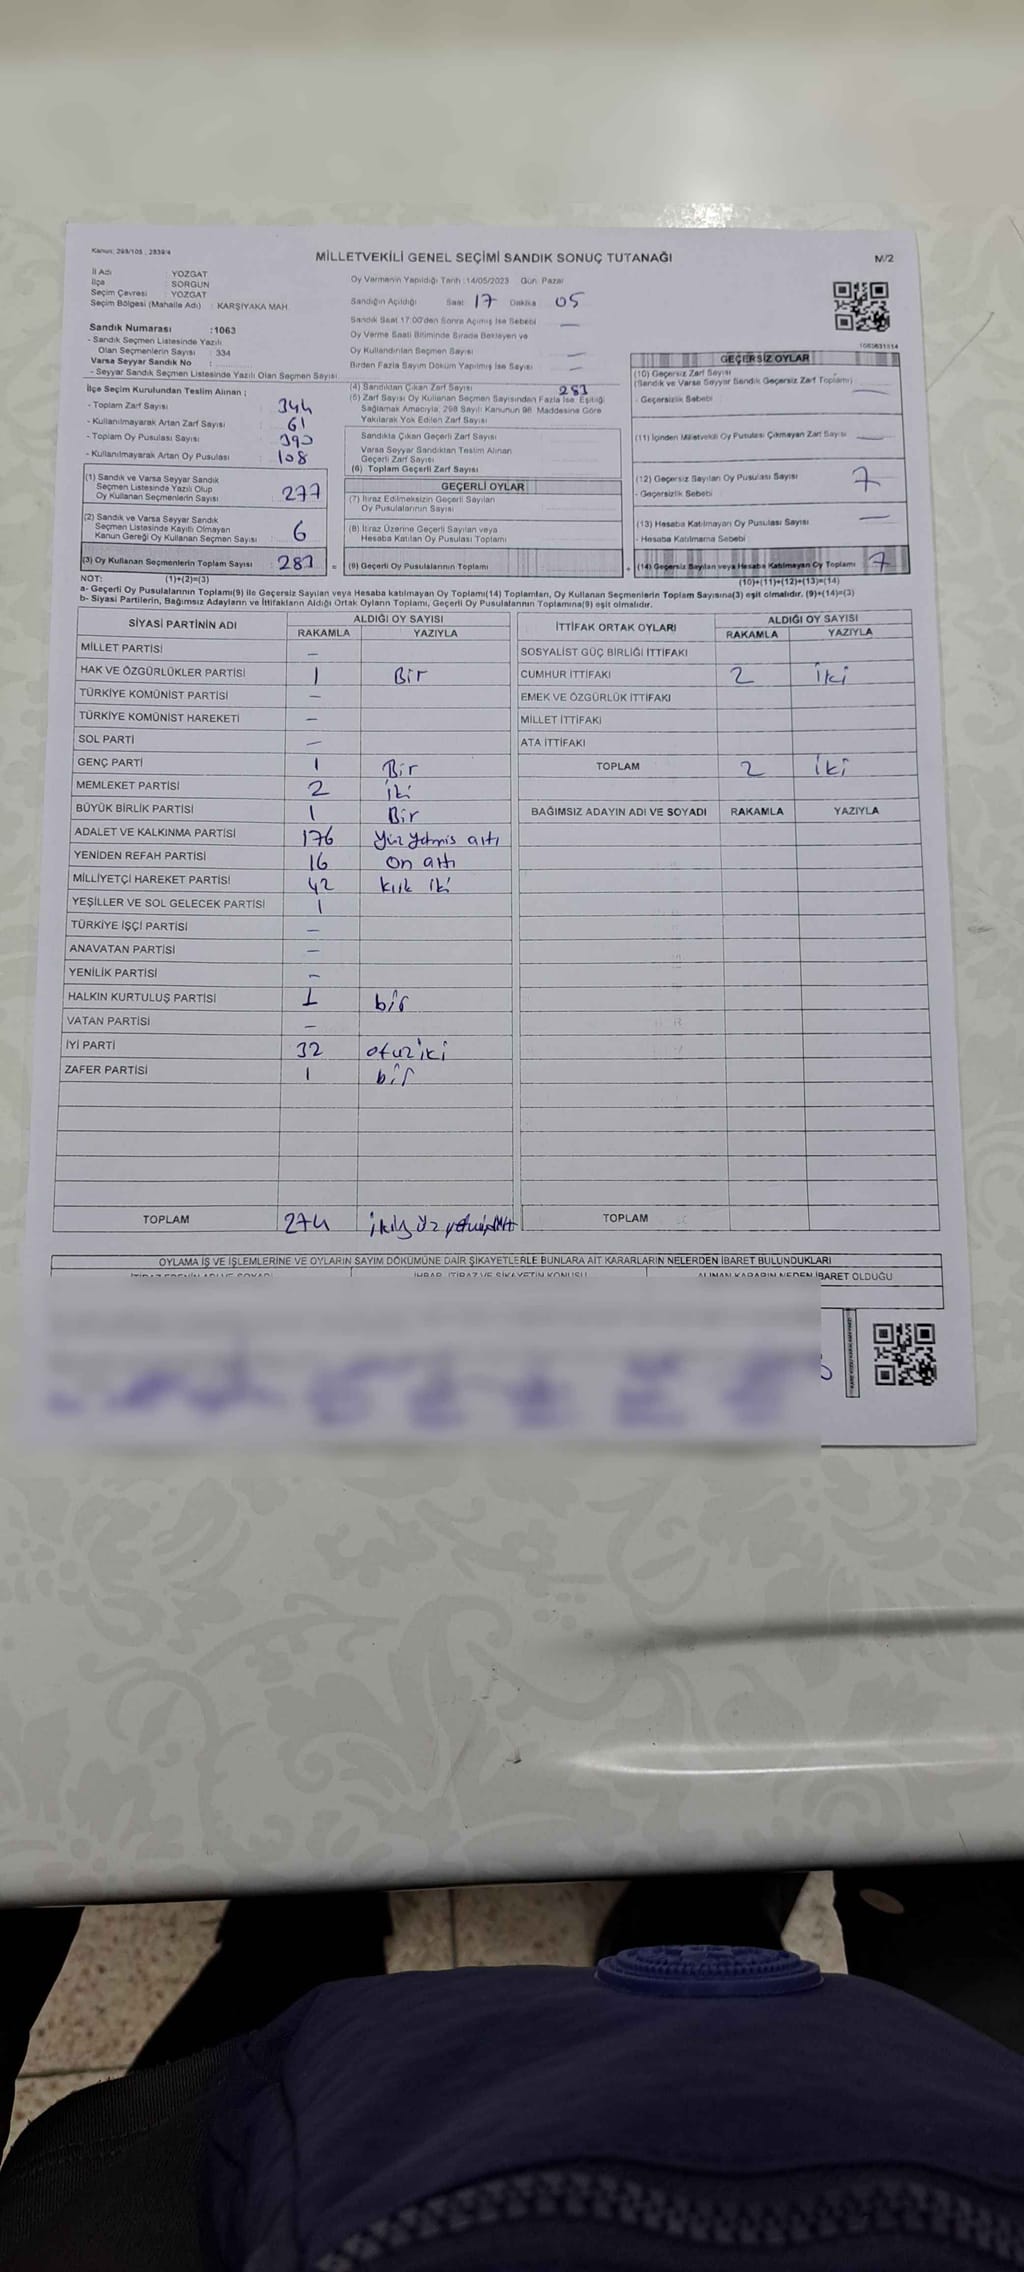 Kanun: 298/105 , 2839/4
MİLLETVEKİLİ GENEL SEÇİMİ SANDIK SONUÇ TUTANAĞI
M/2
İl Adı : YOZGAT
İlçe : SORGUN
Seçim Çevresi : YOZGAT
Seçim Bölgesi (Mahalle Adı) : KARŞIYAKA MAH.
Sandık Numarası :1063
- Sandık Seçmen Listesinde Yazılı
Olan Seçmenlerin Sayısı : 334
Varsa Seyyar Sandık No :
- Seyyar Sandık Seçmen Listesinde Yazılı Olan Seçmen Sayısı:
Oy Vermenin Yapıldığı Tarih :14/05/2023 Gün: Pazar
Sandığın Açıldığı Saat 17 Dakika 05
Sandık Saat 17:00'den Sonra Açılmış İse Sebebi —
Oy Verme Saati Bitiminde Sırada Bekleyen ve
Oy Kullandırılan Seçmen Sayısı —
Birden Fazla Sayım Döküm Yapılmış İse Sayısı —
1063631514
İlçe Seçim Kurulundan Teslim Alınan ;
- Toplam Zarf Sayısı 344
- Kullanılmayarak Artan Zarf Sayısı 61
- Toplam Oy Pusulası Sayısı 390
- Kullanılmayarak Artan Oy Pusulası 108
(1) Sandık ve Varsa Seyyar Sandık
Seçmen Listesinde Yazılı Olup
Oy Kullanan Seçmenlerin Sayısı 277
(2) Sandık ve Varsa Seyyar Sandık
Seçmen Listesinde Kayıtlı Olmayan
Kanun Gereği Oy Kullanan Seçmen Sayısı 6
(3) Oy Kullanan Seçmenlerin Toplam Sayısı 283 =
(4) Sandıktan Çıkan Zarf Sayısı 283
(5) Zarf Sayısı Oy Kullanan Seçmen Sayısından Fazla İse, Eşitliği
Sağlamak Amacıyla, 298 Sayılı Kanunun 98. Maddesine Göre
Yakılarak Yok Edilen Zarf Sayısı
Sandıkta Çıkan Geçerli Zarf Sayısı
Varsa Seyyar Sandıktan Teslim Alınan
Geçerli Zarf Sayısı
(6) Toplam Geçerli Zarf Sayısı
GEÇERLİ OYLAR
(7) İtiraz Edilmeksizin Geçerli Sayılan
Oy Pusulalarının Sayısı
(8) İtiraz Üzerine Geçerli Sayılan veya
Hesaba Katılan Oy Pusulası Toplamı
(9) Geçerli Oy Pusulalarının Toplamı +
GEÇERSİZ OYLAR
(10) Geçersiz Zarf Sayısı
(Sandık ve Varsa Seyyar Sandık Geçersiz Zarf Toplamı) —
- Geçersizlik Sebebi
(11) İçinden Milletvekili Oy Pusulası Çıkmayan Zarf Sayısı —
(12) Geçersiz Sayılan Oy Pusulası Sayısı 7
- Geçersizlik Sebebi
(13) Hesaba Katılmayan Oy Pusulası Sayısı —
- Hesaba Katılmama Sebebi
(14) Geçersiz Sayılan veya Hesaba Katılmayan Oy Toplamı 7
NOT: (1)+(2)=(3) (10)+(11)+(12)+(13)=(14)
a- Geçerli Oy Pusulalarının Toplamı(9) ile Geçersiz Sayılan veya Hesaba katılmayan Oy Toplamı(14) Toplamları, Oy Kullanan Seçmenlerin Toplam Sayısına(3) eşit olmalıdır. (9)+(14)=(3)
b- Siyasi Partilerin, Bağımsız Adayların ve İttifakların Aldığı Ortak Oyların Toplamı, Geçerli Oy Pusulalarının Toplamına(9) eşit olmalıdır.
SİYASİ PARTİNİN ADI ALDIĞI OY SAYISI
RAKAMLA YAZIYLA
MİLLET PARTİSİ —
HAK VE ÖZGÜRLÜKLER PARTİSİ 1 Bir
TÜRKİYE KOMÜNİST PARTİSİ —
TÜRKİYE KOMÜNİST HAREKETİ —
SOL PARTİ —
GENÇ PARTİ 1 Bir
MEMLEKET PARTİSİ 2 iki
BÜYÜK BİRLİK PARTİSİ 1 Bir
ADALET VE KALKINMA PARTİSİ 176 Yüz Yetmiş altı
YENİDEN REFAH PARTİSİ 16 On altı
MİLLİYETÇİ HAREKET PARTİSİ 42 kırk iki
YEŞİLLER VE SOL GELECEK PARTİSİ 1
TÜRKİYE İŞÇİ PARTİSİ —
ANAVATAN PARTİSİ —
YENİLİK PARTİSİ —
HALKIN KURTULUŞ PARTİSİ 1 bir
VATAN PARTİSİ —
İYİ PARTİ 32 otuz iki
ZAFER PARTİSİ 1 bir
TOPLAM 274
İTTİFAK ORTAK OYLARI ALDIĞI OY SAYISI
RAKAMLA YAZIYLA
SOSYALİST GÜÇ BİRLİĞİ İTTİFAKI
CUMHUR İTTİFAKI 2 iki
EMEK VE ÖZGÜRLÜK İTTİFAKI
MİLLET İTTİFAKI
ATA İTTİFAKI
TOPLAM 2 iki
BAĞIMSIZ ADAYIN ADI VE SOYADI RAKAMLA YAZIYLA
TOPLAM
OYLAMA İŞ VE İŞLEMLERİNE VE OYLARIN SAYIM DÖKÜMÜNE DAİR ŞİKAYETLERLE BUNLARA AİT KARARLARIN NELERDEN İBARET BULUNDUKLARI
İTİRAZ EDENİN ADI VE SOYADI İHBAR, İTİRAZ VE ŞİKAYETİN KONUSU ALINAN KARARIN NEDEN İBARET OLDUĞU